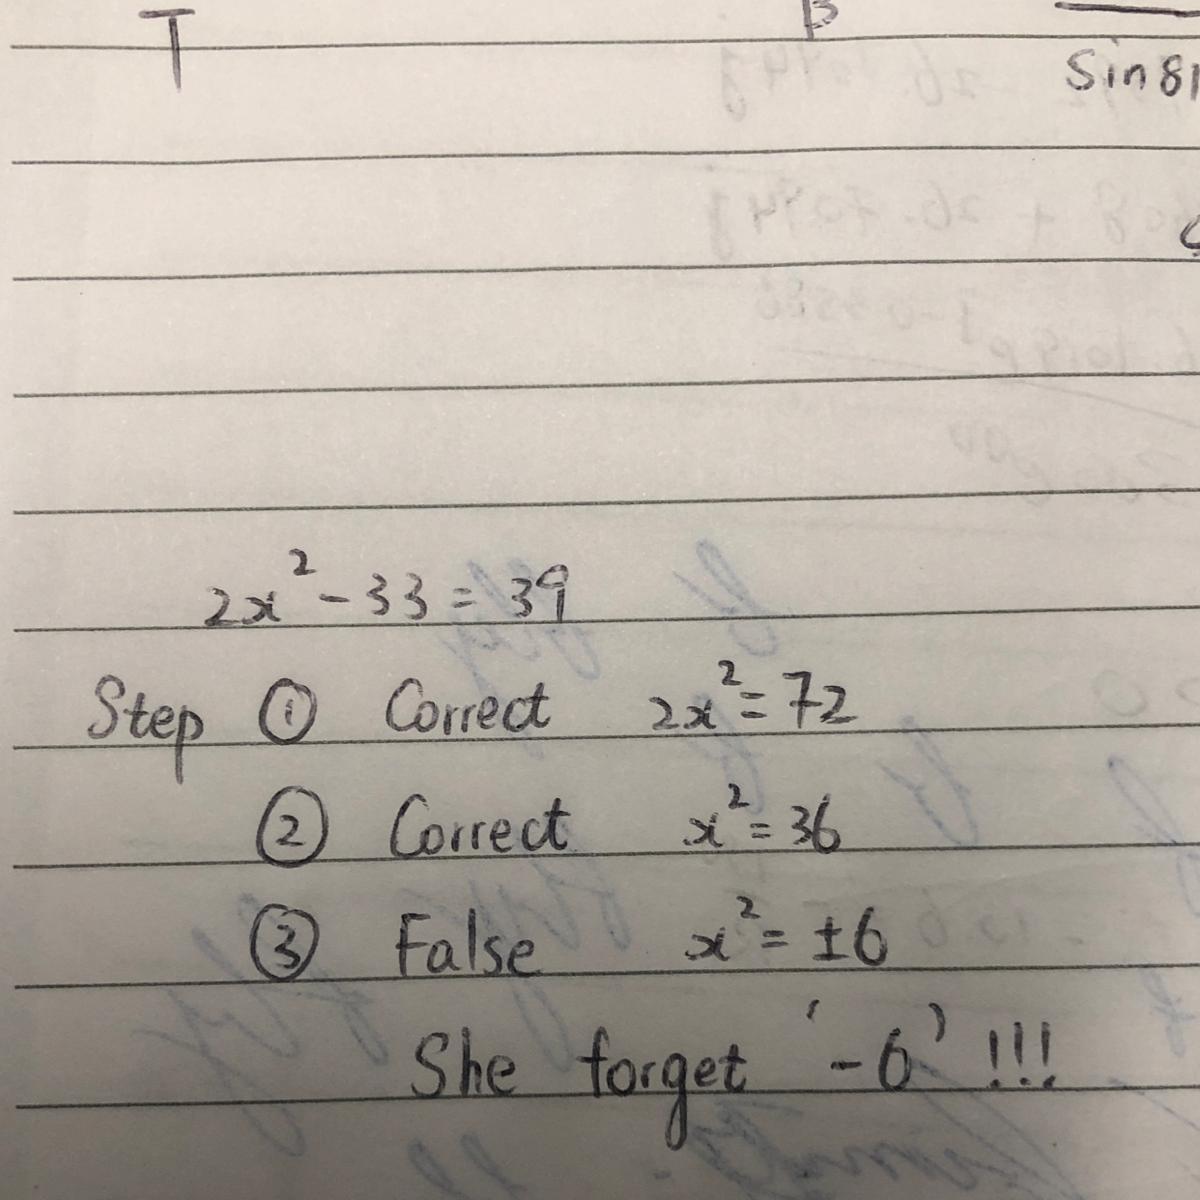 T
B
Sin 81
2x² - 33 = 39
Step ① Correct 2x² = 72
② Correct x² = 36
③ False x² = ±6
She forget '-6' !!!